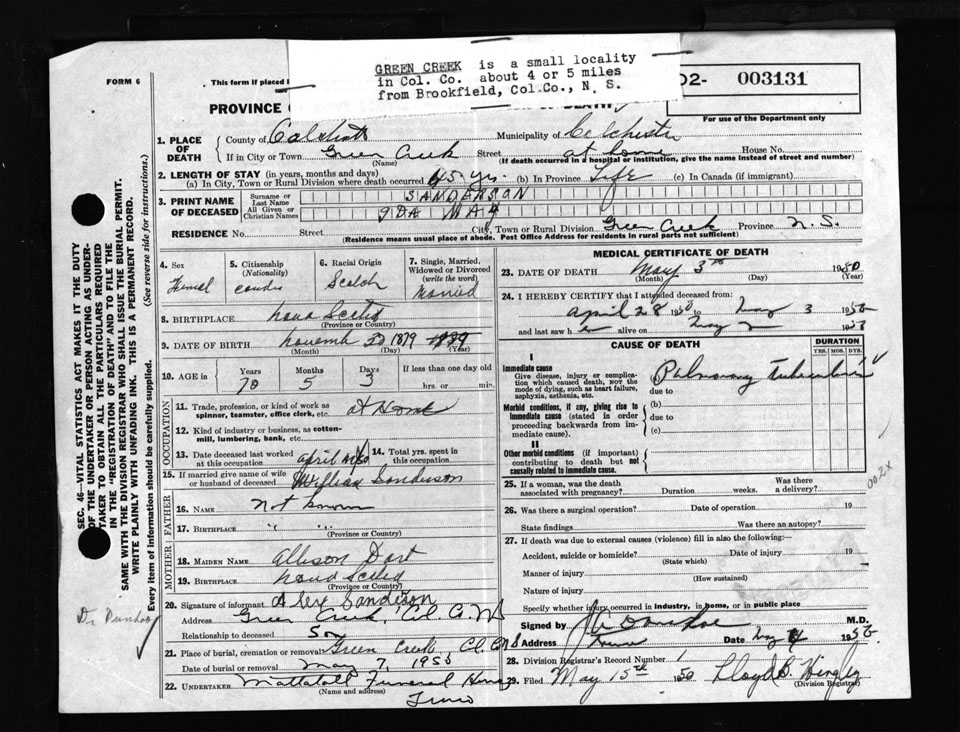 FORM 6
This form if placed i
GREEN CREEK is a small locality
in Col. Co. about 4 or 5 miles
from Brookfield, Col.Co., N. S.
02- 003131
For use of the Department only
PROVINCE
OF DEATH
1. PLACE OF DEATH
County of
Municipality of Colchester
If in City or Town Green Creek Street at home House No.
(Name) (If death occurred in a hospital or institution, give the name instead of street and number)
2. LENGTH OF STAY (in years, months and days)
(a) In City, Town or Rural Division where death occurred 45 yrs. (b) In Province Life (c) In Canada (if immigrant)
3. PRINT NAME OF DECEASED
Surname or Last Name SANDERSON
All Given or Christian Names IDA MAY
RESIDENCE No. Street City, Town or Rural Division Green Creek Province N.S.
(Residence means usual place of abode. Post Office Address for residents in rural parts not sufficient)
4. Sex
5. Citizenship (Nationality)
6. Racial Origin Scotch
7. Single, Married, Widowed or Divorced (write the word) Married
8. BIRTHPLACE Nova Scotia
(Province or Country)
9. DATE OF BIRTH 1879 1889
(Month) (Day) (Year)
10. AGE in Years 70 Months 5 Days 3 If less than one day old hrs. or min.
OCCUPATION
11. Trade, profession, or kind of work as spinner, teamster, office clerk, etc. At Home
12. Kind of industry or business, as cotton-mill, lumbering, bank, etc.
13. Date deceased last worked at this occupation April
14. Total yrs. spent in this occupation
15. If married give name of wife or husband of deceased William Sanderson
FATHER
16. NAME Not known
17. BIRTHPLACE " "
(Province or Country)
MOTHER
18. MAIDEN NAME Allison Dart
19. BIRTHPLACE Nova Scotia
(Province or Country)
20. Signature of informant Alex Sanderson
Address Green Creek, Col. Co. N S
Relationship to deceased Son
21. Place of burial, cremation or removal Green Creek, Col. Co. N S
Date of burial or removal May 7, 1950
22. UNDERTAKER Mattatall Funeral Home
(Name and address)
Truro
MEDICAL CERTIFICATE OF DEATH
23. DATE OF DEATH May 3rd 1950
(Month) (Day) (Year)
24. I HEREBY CERTIFY that I attended deceased from:
April 28 1950 to May 3 1950
and last saw h alive on May 2 19
CAUSE OF DEATH
DURATION
YRS. MOS. DYS.
I
Immediate cause
Give disease, injury or complication which caused death, NOT the mode of dying, such as heart failure, asphyxia, asthenia, etc.
(a) Pulmonary Tuberculosis
due to
Morbid conditions, if any, giving rise to immediate cause (stated in order proceeding backwards from immediate cause).
(b)
due to
(c)
II
Other morbid conditions (if important) contributing to death but not causally related to immediate cause.
002X
25. If a woman, was the death associated with pregnancy? Duration weeks. Was there a delivery?
26. Was there a surgical operation? Date of operation 19
State findings Was there an autopsy?
27. If death was due to external causes (violence) fill in also the following:—
Accident, suicide or homicide? Date of injury 19
(State which)
Manner of injury
(How sustained)
Nature of injury
Specify whether injury occurred in industry, in home, or in public place
Signed by M.D.
Address Truro Date May 4 1950
28. Division Registrar's Record Number 1
29. Filed May 15th 1950 Lloyd B. Hingley
(Division Registrar)
SEC. 46—VITAL STATISTICS ACT MAKES IT THE DUTY
OF THE UNDERTAKER OR PERSON ACTING AS UNDER-
TAKER TO OBTAIN ALL THE PARTICULARS REQUIRED
IN THE "REGISTRATION OF DEATH" AND TO FILE THE
SAME WITH THE DIVISION REGISTRAR WHO SHALL ISSUE THE BURIAL PERMIT.
WRITE PLAINLY WITH UNFADING INK. THIS IS A PERMANENT RECORD.
Every item of information should be carefully supplied. (See reverse side for instructions.)